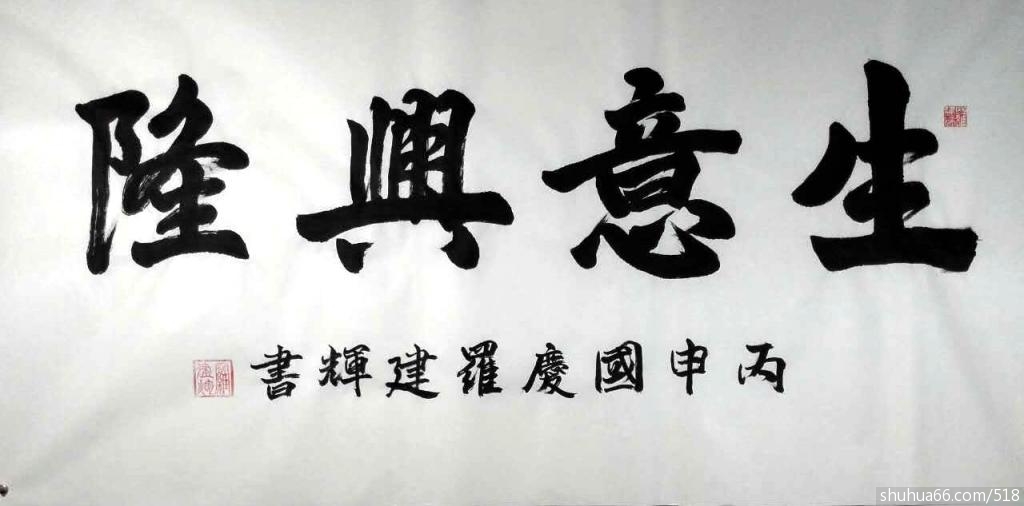 生意興隆
丙申國慶羅建輝書
shuhua66.com/518